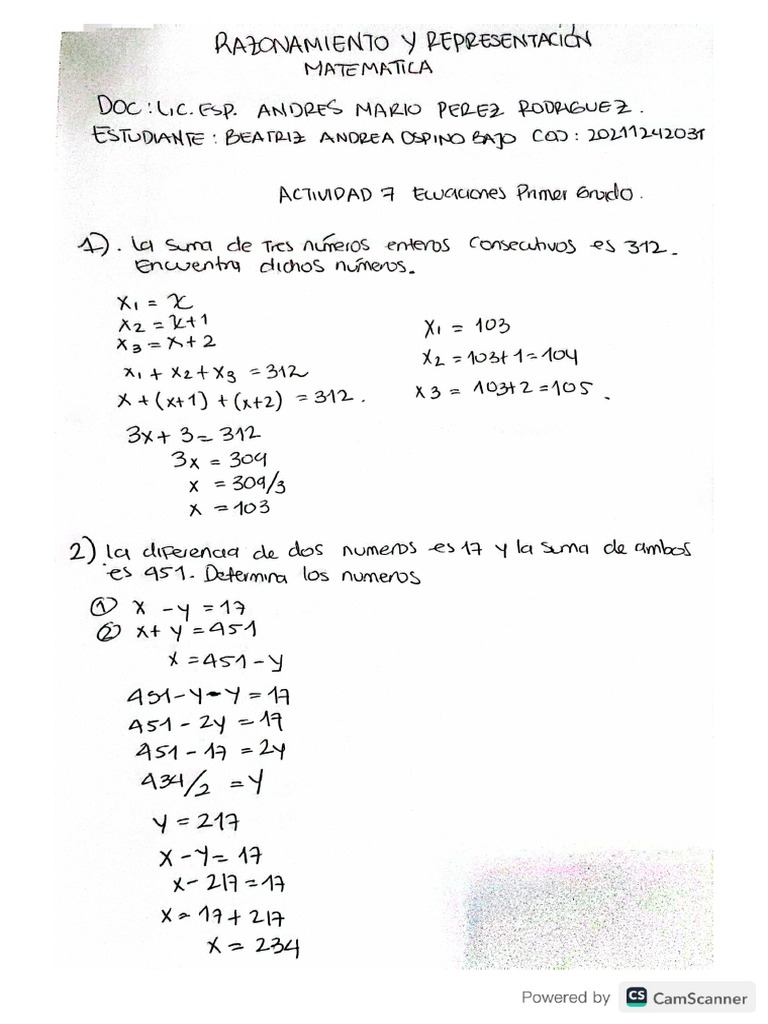 RAZONAMIENTO Y REPRESENTACIÓN
MATEMATICA
DOC: LIC. ESP. ANDRES MARIO PEREZ RODRIGUEZ.
ESTUDIANTE: BEATRIZ ANDREA OSPINO BAJO COD: 20211242031
ACTIVIDAD 7 Ecuaciones Primer Grado.
1). La suma de Tres números enteros consecutivos es 312.
Encuentra dichos números.
x1 = x
x2 = x+1
x3 = x+2
x1 + x2 + x3 = 312
x + (x+1) + (x+2) = 312.
3x + 3 = 312
3x = 309
x = 309/3
x = 103
x1 = 103
x2 = 103+1 = 104
x3 = 103+2 = 105.
2) La diferencia de dos numeros es 17 y la suma de ambos
es 451. Determina los numeros
① x - y = 17
② x + y = 451
x = 451 - y
451 - y - y = 17
451 - 2y = 17
451 - 17 = 2y
434/2 = y
y = 217
x - y = 17
x - 217 = 17
x = 17 + 217
x = 234
Powered by CS CamScanner